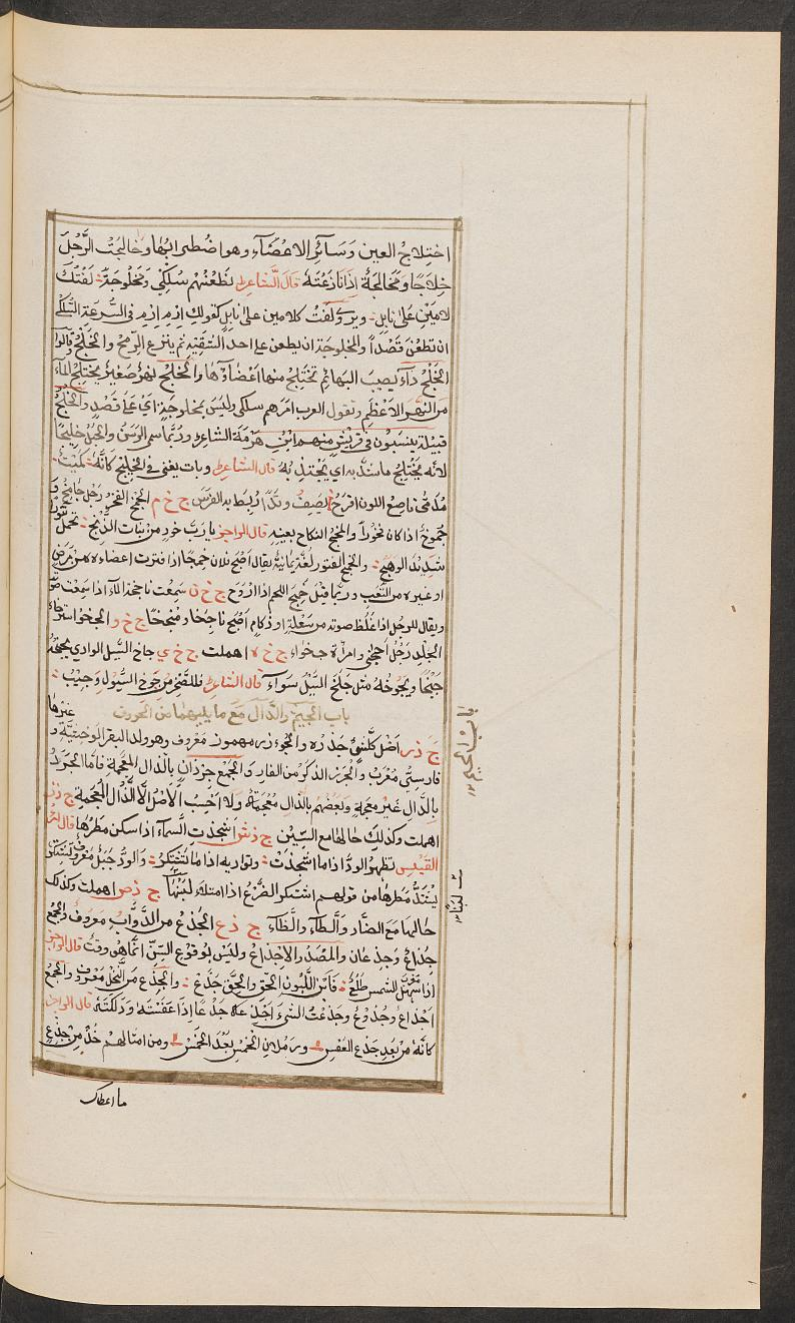 اختِلاجُ العين وَسَآئِرُ الاعْضَآء وهو اضْطرابُها وخالَجْتُ الرَّجُلَ
خِلاجًا ومُخَالَجَةً اِذَا نازَعْتَهُ قالَ الشّاعر نَطْعَنُهُم سُلْكَى وَمَخْلُوجَةً لَفْتَكَ
لامَيْنِ عَلىٰ نابِلِ ويروى لَفْتَ كلامين على نابِلٍ كقولك اِرْمِ اِرْمِ فى السُّرعَةِ السُّلْكَى
ان تطعن قَصْداً والمخلوجة ان يطعن على احد الشقّيه ثم ينزع الرّمحَ والخَلَجُ قالوا
الخَلَجُ داءٌ يُصِيبَ البهائم تختَلِجُ منها اعْضَاؤُها والخَليجُ نهرٌ صَغيرٌ يختَلِجُ المآء
مِنَ النّهر الاعْظَمِ وتقول العرب امرهم سلكى وليسَ بمخلوجَةٍ اَىْ عَلىٰ قَصْدٍ والخُلُجُ
قبيلة ينسَبُون فى قريشٍ منهم ابْنُ هَرْمَة الشاعر ورُبَّما سمّى الرَسَنُ والحَبْلُ خليجًا
لانّه يَخْتلِجُ ما شدَّ به اى يَجْتَذِبُهُ قال الشاعر وبات يغنى فى الخليج كانَّهُ كُمَيْتٌ
مُدَمًّى ناصِعُ اللون اقرحُ يَصِفُ وتداً رُبطَ به الفَرَسَ ج خ م الجَمْخُ الفَخْرُ رَجل جَامِخٌ وَ
جَموخٌ اذا كان فخُوراً والخجم النكاح بعينه قال الراجز يا رَبَّ خودٍ من بَنات الزَّنْجِ تحمل تَنُّوراً
شديْدَ الوهْجِ والخمج الفتور لُغَة يَمانِيَة يقال اَصْبَح فلان خَمِجًا اذا فترت اعضاءه من مَرَضٍ
او غيره من التعَبِ وربّما قيلَ خَمِجَ اللحم اذا اَرْوَحَ ج خ ن سَمِعْت ناجخة المآء اذا سَمِعْت صَوْتَه
ويقال للرجل اذا غَلُظ صوته من سَعْلَةٍ او زكامٍ اَصْبَح ناجِخًا ومُنَجِّخًا ج خ و الجخو استرخاء
الجِلد رَجُل اَجْخَى وامرأة جخواء ج خ ه اهملت ج خ ي جاخ السَّيل الوادي يجيخهُ
جَيْخًا ويجُوخُهُ مثل جَلَخَ السَّيْلُ سَوَاء قال الشاعر فللصَّخْرِ مِن جَوْخِ السُّيولِ وَجيْبُ
باب الجيم والذّال مَعَ ما يليهما من الحروف
ج ذ ر اَصْل كُلّ شىء جَذْرُه والجُوءذر مهموز مَعْروف وهو ولد البقر الوَحْشِيَّة وغيرها
فارسىّ مُعَرَّبٌ والجُرَذ الذَّكر من الفار والجَمْع جِرْذانٌ بالذّال المعُجَمة فامّا الجَرَدُ
بالدَّال غَيْر معجَمةٍ وبَعْضُهُم بالذّالِ مُعْجَمَة وَلا اَحْسِبُ الاَصْلَ اِلّا الذَّال المُعْجَمة ج ذ ز
اهملت وكذلِكَ حالها مع السِّيْن ج ذ ش اَشْجذتِ السَّمآءُ اذا سكن مَطَرُها قال امرؤ
القَيْسِ تُظْهِرُ الودَّ اذا ما اَشْجَذَتْ وتُواريه اذا ما تَشْتَكِرْ والوَدُّ جَبَلٌ مَعْروفٌ تَشْتَكِرُ
يشْتَدُّ مَطَرها من قولهم اشتكر الضَّرْعُ اذا امتلاء لَبَنًا ج ذ ص اهملت وكذلك
حالها مَعَ الضّادِ والطاء والظّاء ج ذ ع الجَذَعُ من الدَّوابّ مَعروف والجمع
جِذاعٌ وَجِذعان والمَصْدَر الاِجْذاعُ وليسَ بوقوع السِنّ اِنَّما هى وقتٌ قال الراجز
اذا سُهَيْلٌ مَغْرِبَ الشَّمسِ طَلَعْ فابْن اللَّبُون الحِقُّ والحِقُّ جَذَعْ والجِذْع من النَّخل مَعْروفٌ والجَمْعُ
اَجْذاع وَجُذُوعٌ وجَذَعْتُ الشىءَ اَجْذَعه جَذْعًا اِذا عَفَسْتَهُ وَدَلكتَهُ قال الراجز
كانّهُ مِنْ بَعْدِ جَذْعِ العَفْسِ ورَمَلانِ الخِمْسِ بَعْدَ الخِمْسِ ومن امثالهم خُذْ مِنْ جِذْعٍ
ما اعطاك
باب الجيم
لبنًا